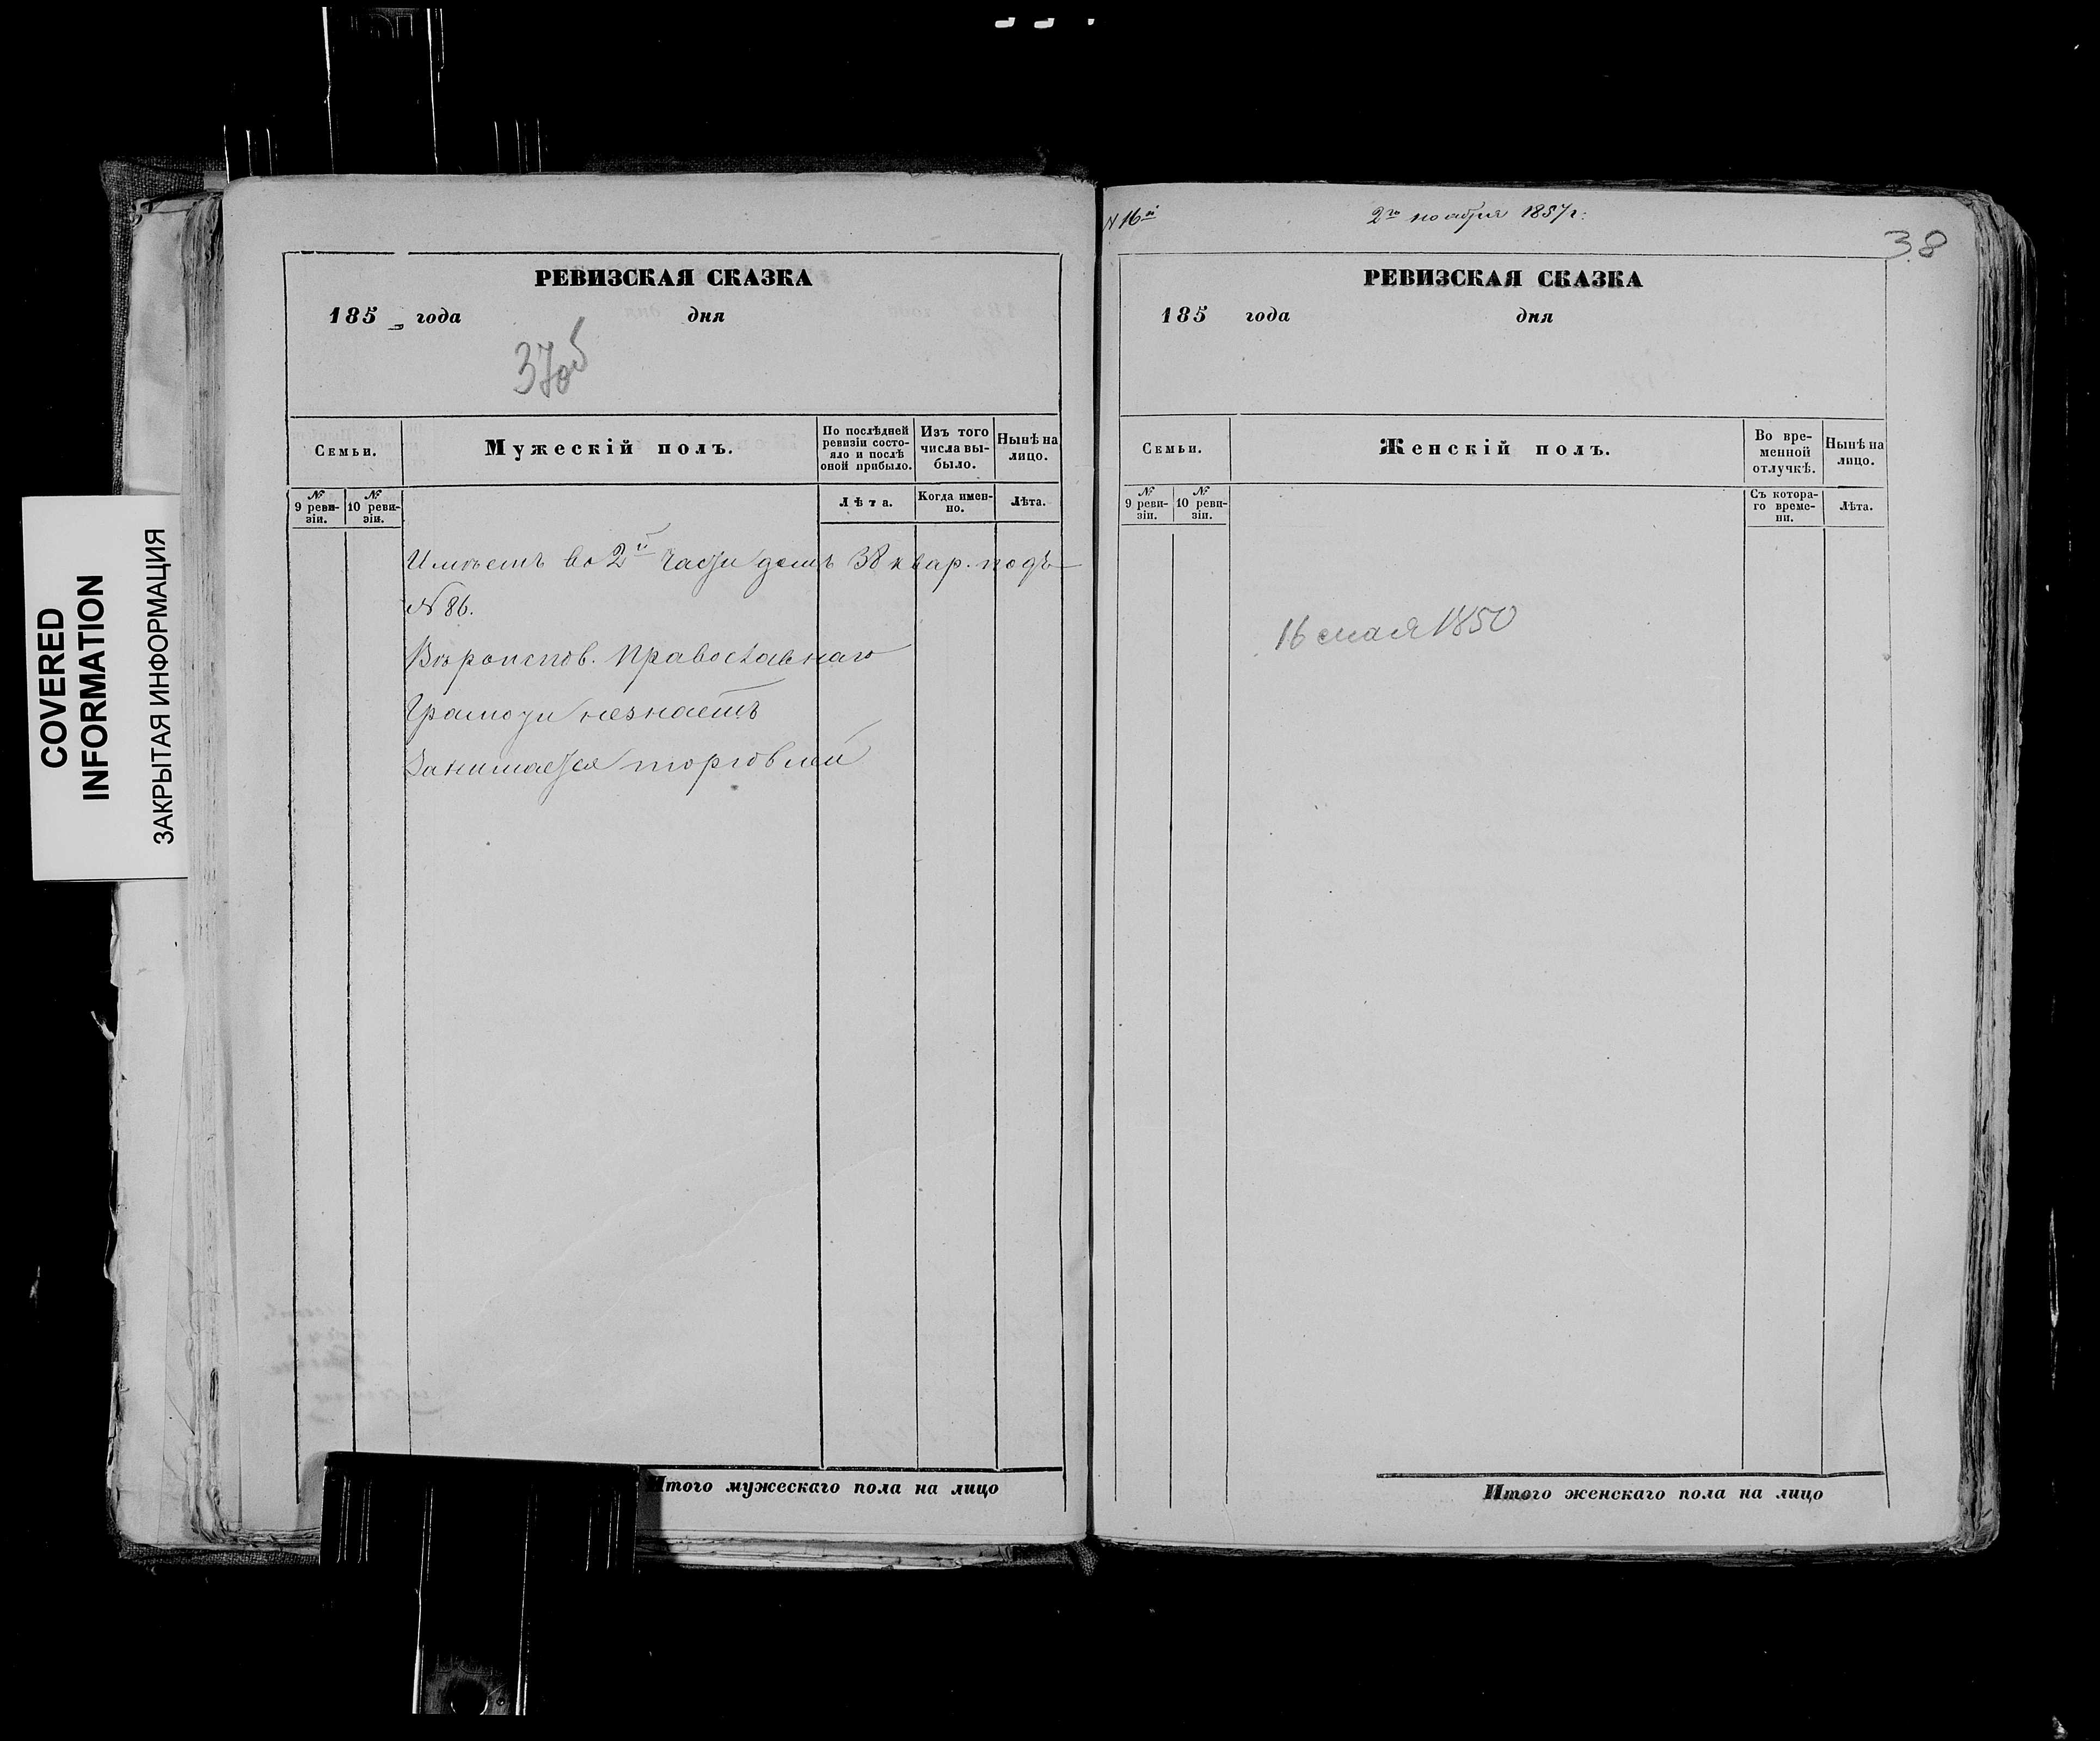 COVERED
INFORMATION
ЗАКРЫТАЯ ИНФОРМАЦИЯ
РЕВИЗСКАЯ СКАЗКА
185 года дня
37об
Семьи.
Мужескій полъ.
По послѣдней
ревизіи состо-
яло и послѣ
оной прибыло.
Изъ того
числа вы-
было.
Нынѣ на
лицо.
№
9 реви-
зіи.
№
10 реви-
зіи.
Лѣта.
Когда имен-
но.
Лѣта.
Имѣетъ во 2й части домъ 38 квар. подъ
N 86.
Вѣроиспов. Православнаго
Грамоти незнаетъ
Занимается торговлей
Итого мужескаго пола на лицо
N 16й
2го ноября 1857 г:
38
РЕВИЗСКАЯ СКАЗКА
185 года дня
Семьи.
Женскій полъ.
Во вре-
менной
отлучкѣ.
Нынѣ на
лицо.
№
9 реви-
зіи.
№
10 реви-
зіи.
Съ котора-
го време-
ни.
Лѣта.
16 мая 1850
Итого женскаго пола на лицо